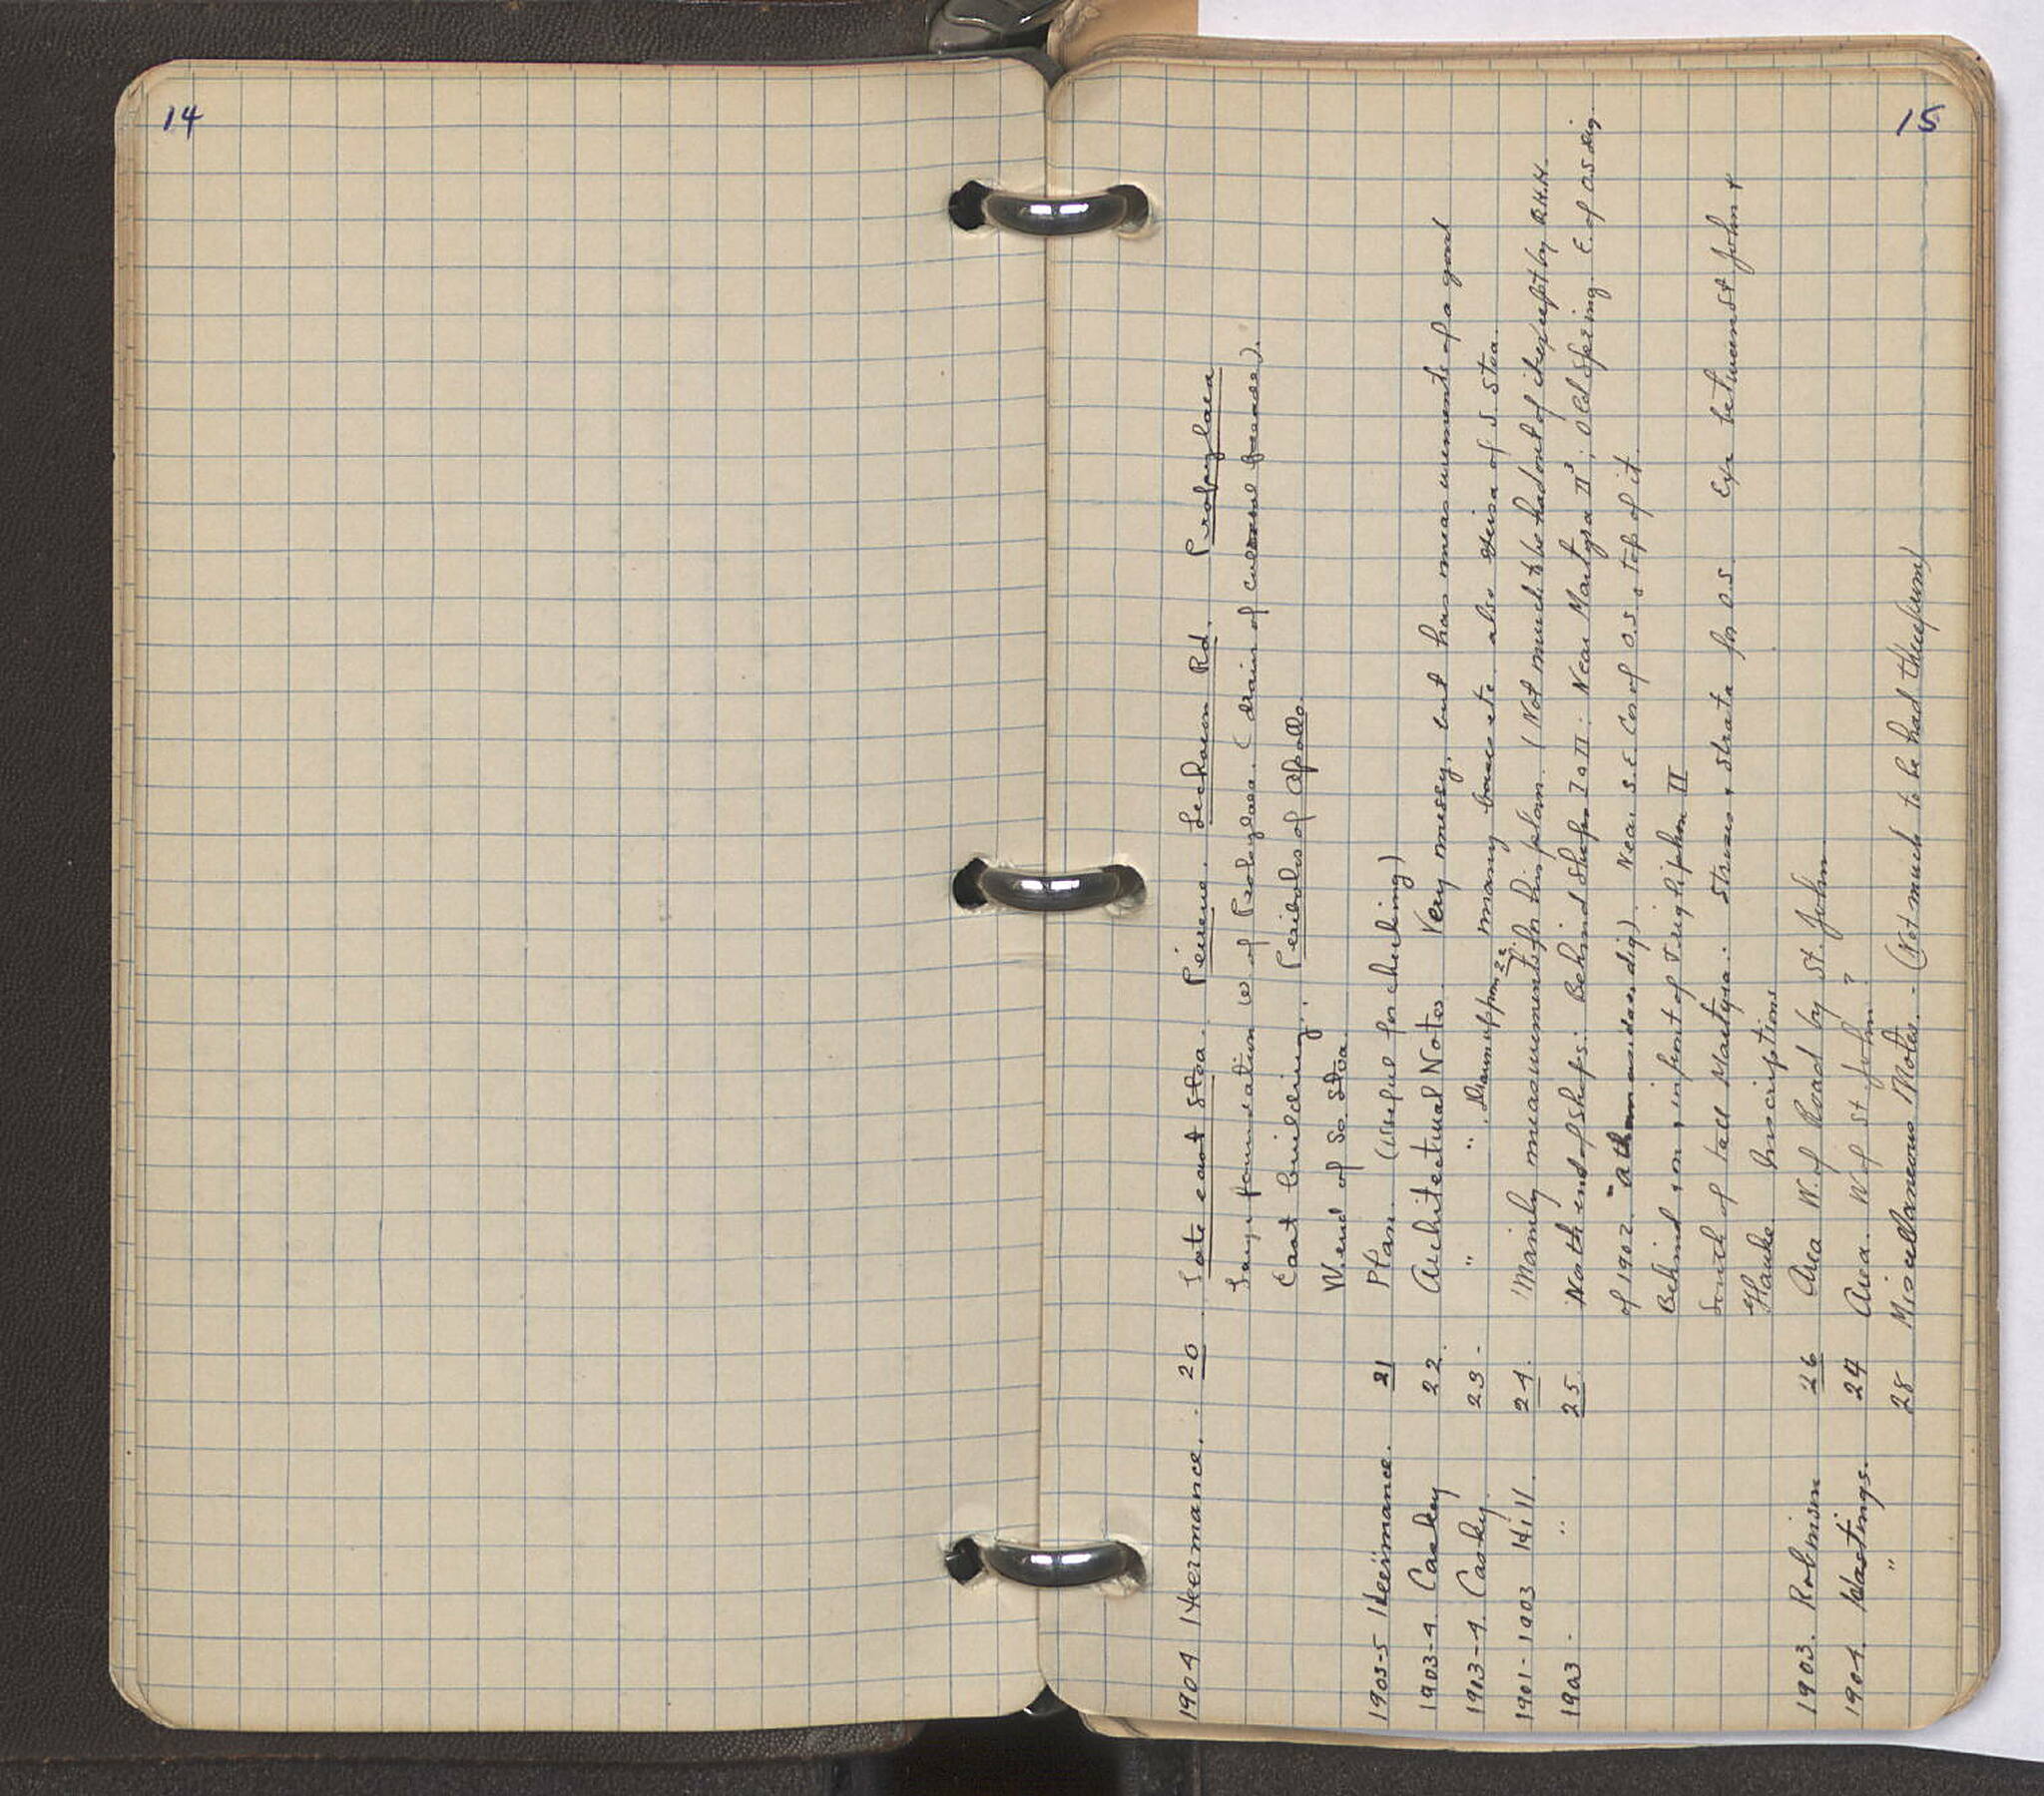 14
15
1904 Heermance. . 20 . Late east Stoa. Peirene. Lechaeon Rd. Propylaea
Large foundation W of Propylaea. (drain of curved ).
East building. . Peribolos of Apollo.
W. end of So. Stoa.
1903-5 Heermance. 21 Plan. (Useful for checking)
1903-4 Caskey 22. Architectural Notes. Very messy, but has measurements of a good
1903-4 Caskey. 23 - " " . Drawn up from 22 many bases etc. also of S Stoa.
1901-1903 Hill. 24. Mainly measurements for his plan. (Not much to be had out of it except by B.H.H.
1903 - " 25. North end of Shops: Behind Shops I to II: Near Martyra II: Old Spring. E. of O.S. dig.
of 1902. dig). Near S.E. Cor of O.S. top of it.
Behind, on, in front of Triglyphon II
South of tall Martyra: Struzes, Strata for O.S. Exp between St John &
Hauke Inscriptions
1903. Robinson 26 Area W. of Road by St. John.
1904. Hastings. 27 Area. W of St. John. ?
" 28 Miscellaneous Notes. - (Not much to be had therefrom)